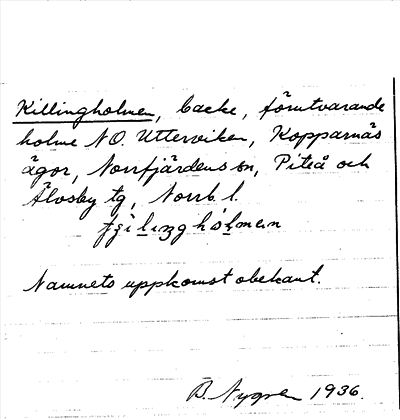 Killingholmen, backe, förutvarande
holme N O. Utterviken, Kopparnäs
ägor, Norrfjärdens sn, Piteå och
Älvsby tg, Norrb. l.
Namnets uppkomst obekant.
B. Nygren 1936.